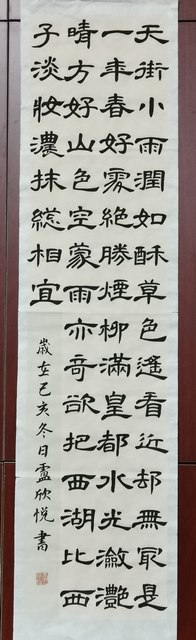 天街小雨潤如酥草色遙看近却無冣是
一年春好處絕勝煙柳滿皇都水光瀲灩
晴方好山色空蒙雨亦奇欲把西湖比西
子淡妝濃抹總相宜
歲在己亥冬日盧欣悅書